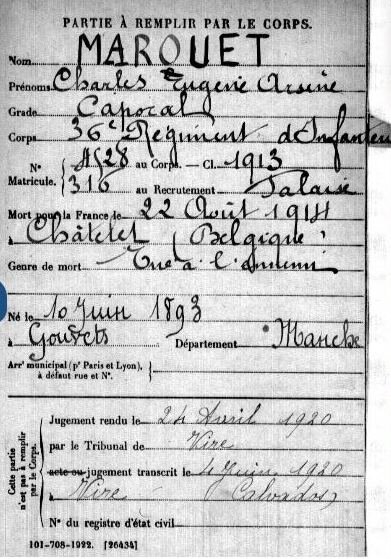 PARTIE À REMPLIR PAR LE CORPS.
Nom MARQUET
Prénoms Charles Eugène Arsène
Grade Caporal
Corps 36e Régiment d'Infanterie
N° Matricule. { 4528 au Corps. — Cl. 1913
316 au Recrutement Falaise
Mort pour la France le 22 Août 1914
à Châtelet (Belgique)
Genre de mort Tué à l'ennemi
Né le 10 Juin 1893
à Gouvets Département Manche
Arrt municipal (pr Paris et Lyon), à défaut rue et N°. {
Cette partie n'est pas à remplir par le Corps.
Jugement rendu le 24 Avril 1920
par le Tribunal de Vire
acte ou jugement transcrit le 4 Juin 1920
à Vire Calvados
N° du registre d'état civil
101-708-1922. [26434]